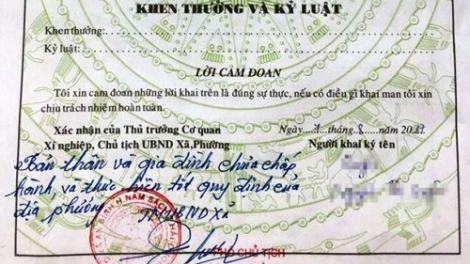 KHEN THƯỞNG VÀ KỶ LUẬT
Khen thưởng:
Kỷ luật:
LỜI CAM ĐOAN
Tôi xin cam đoan những lời khai trên là đúng sự thực, nếu có điều gì khai man tôi xin
chịu trách nhiệm hoàn toàn.
Xác nhận của Thủ trưởng Cơ quan
Xí nghiệp, Chủ tịch UBND Xã,Phường
Ngày tháng 20
Người khai ký tên
Bản thân và gia đình chưa chấp
hành và thực hiện tốt quy định của
địa phương
TM UBND Xã
H.NAM SÁCH
PHÓ CHỦ TỊCH